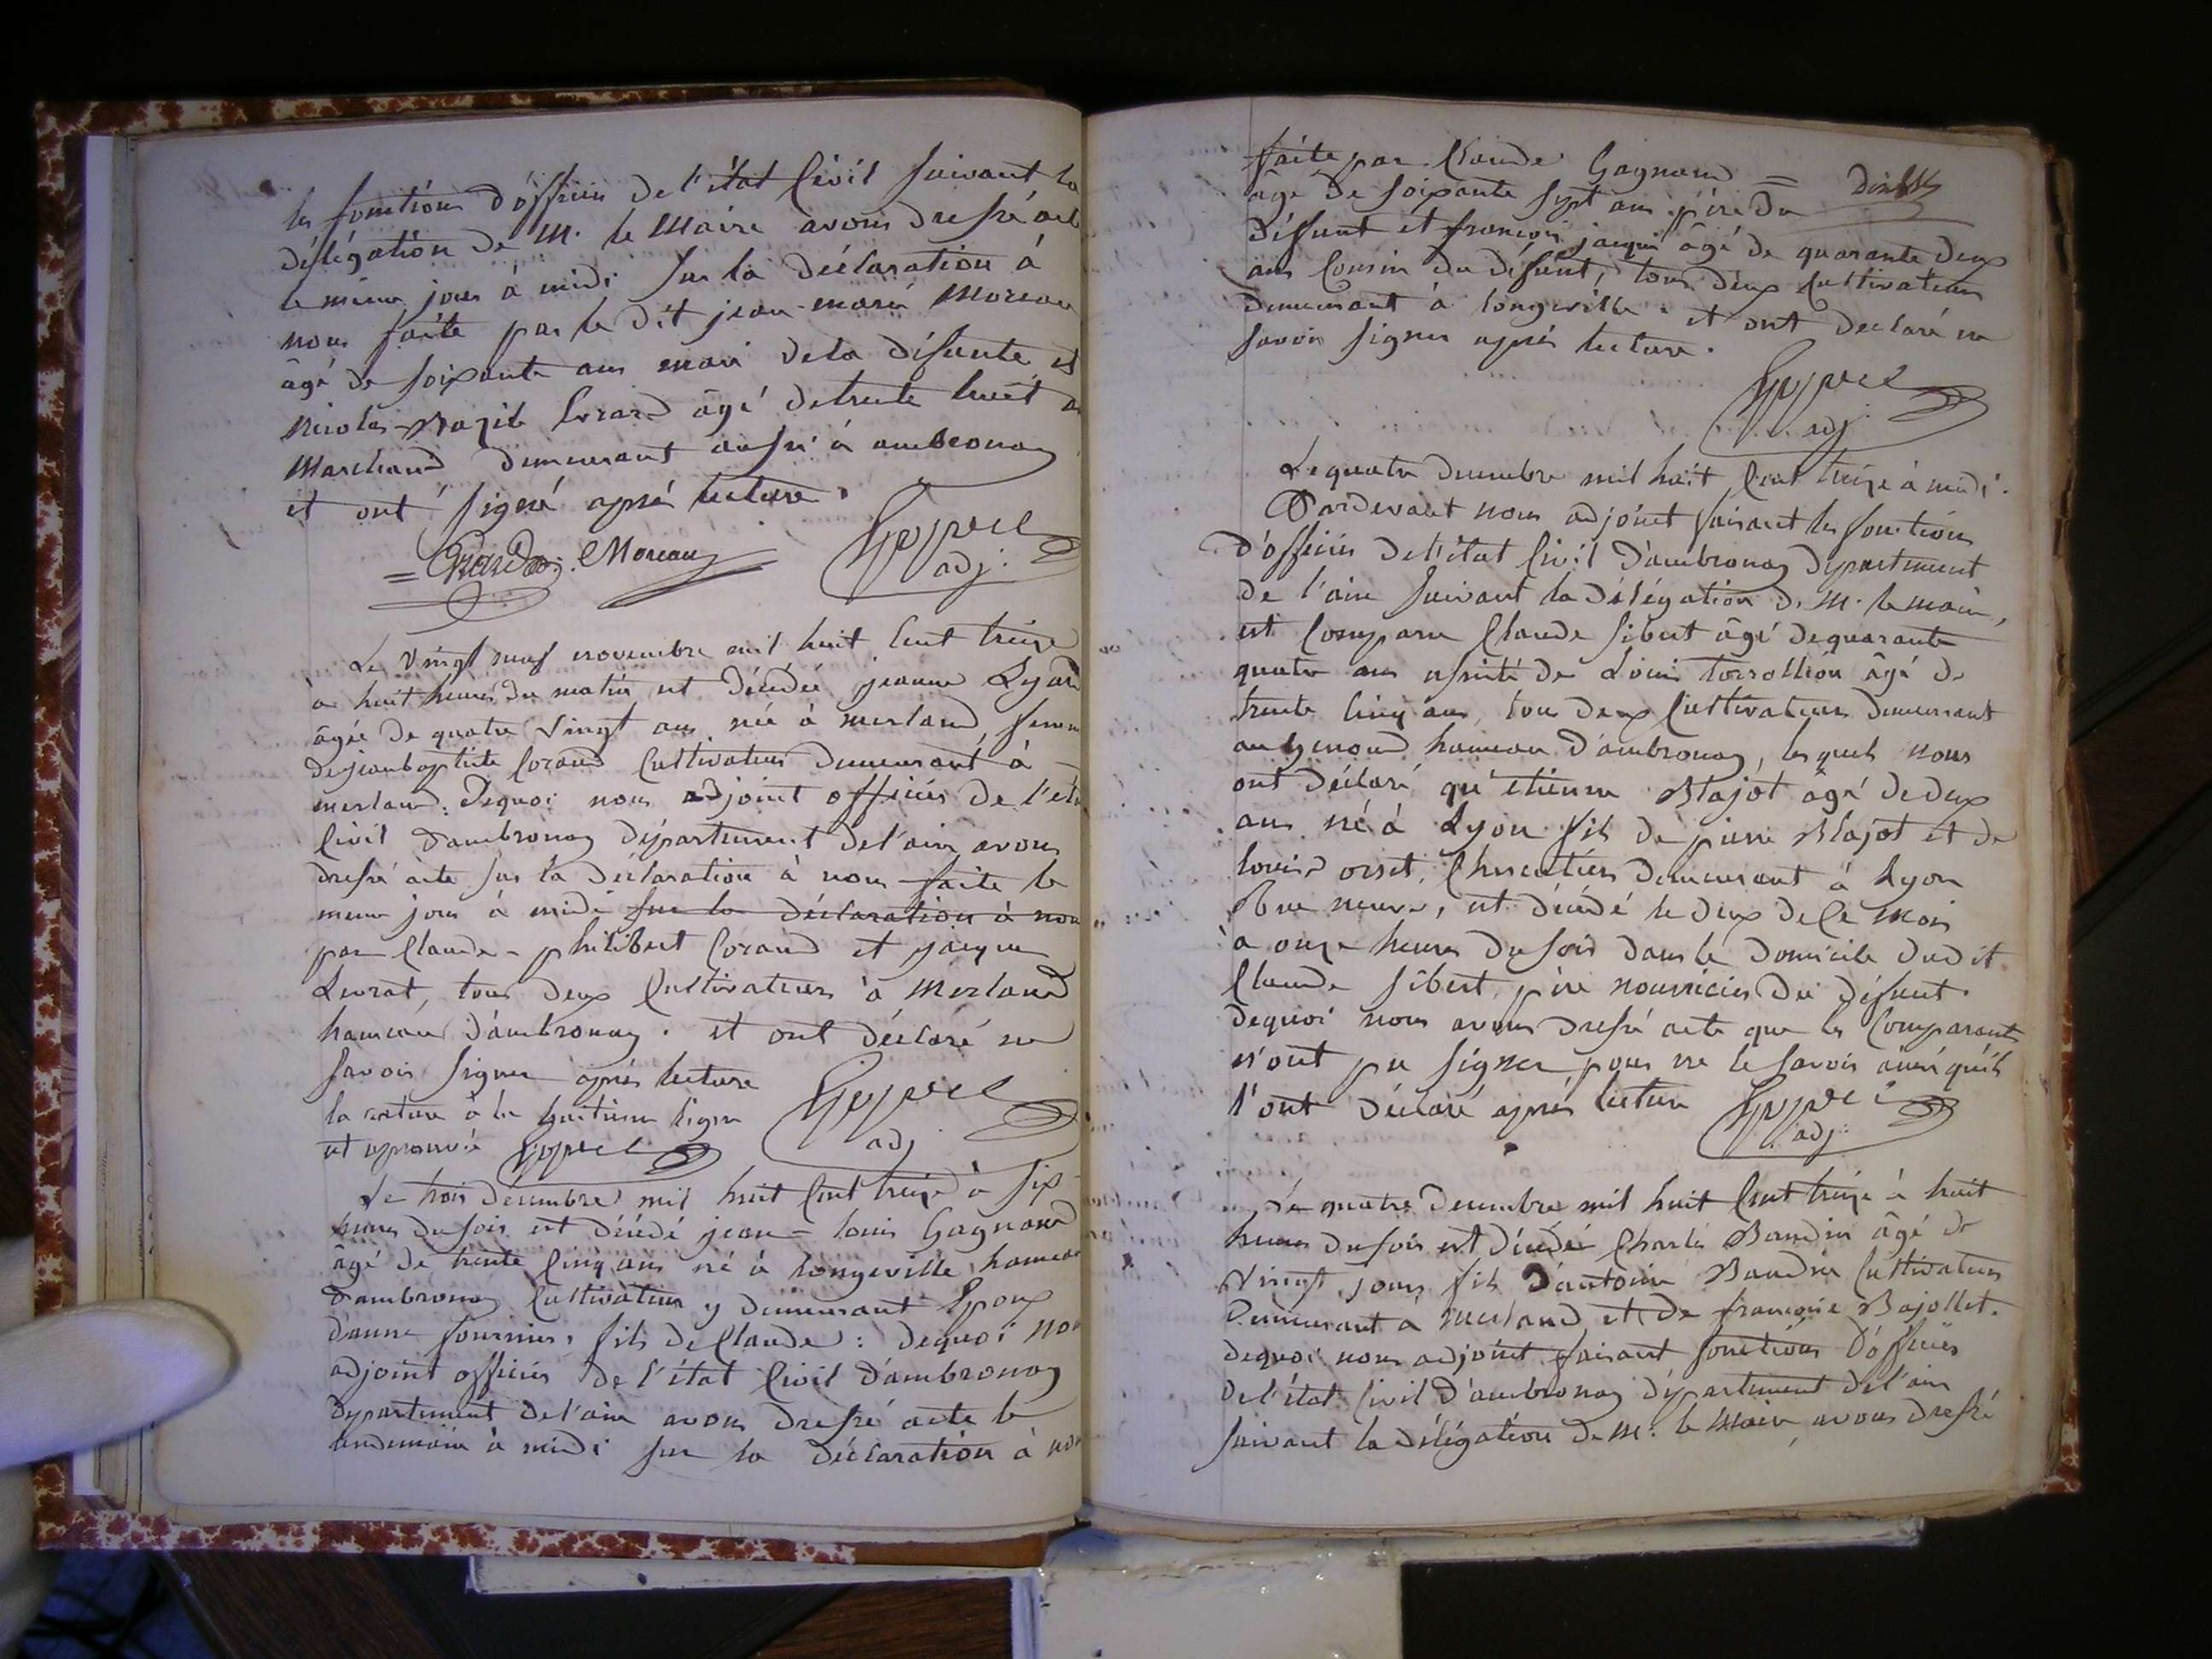 les fonctions d'officier de l'état Civil suivant la
délégation de M. le Maire avons dressé acte
le même jour à midi sur la déclaration à
nous faite par le dit jean-marie Moreau
âgé de soixante ans mari de la défunte et
nicolas Bazile Grard âgé de trente huit a
Marchand demeurant aussi à ambronay
et ont signé après lecture.
Moreau Goppel
adj.
Le vingt neuf novembre mil huit Cent treize
à huit heures du matin est décédée jeanne Lyard
âgée de quatre vingt ans née à merland, femm
de jean baptiste Corand Cultivateur demeurant à
merland. Dequoi nous adjoint officier de l'éta
Civil d'ambronay département de l'ain avons
dressé acte sur la déclaration à nous faite le
même jour à midi sur la déclaration à nou
par Claude-philibert Corand et jacque
Livrat, tous deux Cultivateurs à Merland
hameau d'ambronay. et ont déclaré ne
savoir signer après lecture
la rature à la huitieme ligne
est aprouvée Goppel Goppel
adj
Le trois décembre mil huit Cent treize à six
heures du soir est décédé jean=louis Gagnard
âgé de trente cinq ans né à longeville hameau
d'ambronay Cultivateur y demeurant Epoux
d'anne fournier, fils de Claude: dequoi nou
adjoint officier de l'état Civil d'ambronay
département de l'ain avons dressé acte le
lendemain à midi sur la déclaration à nou
faite par Claude Gagnard =
âgé de soixante sept ans père du
défunt et francois jacquin âgé de quarante deux
ans Cousin du défunt, tous deux Cultivateurs
demeurant à longeville. et ont declaré ne
savoir signer après lecture.
Goppel
adj
Le quatre decembre mil huit Cent treize à midi.
Pardevant nous adjoint faisant les fonctions
d'officier de l'état Civil d'ambronay département
de l'ain suivant la délégation de M. le maire,
est Comparu Claude Sibert âgé de quarante
quatre ans assisté de Louis Torrollion âgé de
trente cinq ans, tous deux Cultivateurs demeurant
au genoud hameau d'ambronay, lesquels nous
ont déclaré qu'étienne Blajot âgé de deux
ans né à Lyon fils de pierre Blajot et de
louise orset, Charcutiers demeurant à Lyon
Rue neuve, est décédé le deux de Ce mois
à onze heures du soir dans le domicile dudit
Claude Sibert, père nourricier du défunt.
dequoi nous avons dressé acte que les Comparants
n'ont pu signer pour ne le savoir ainsi qu'ils
l'ont déclaré après lecture Goppel
adj.
Le quatre decembre mil huit Cent treize à huit
heures du soir est décédé Charles Baudin âgé de
vingt jours fils d'antoine Baudin Cultivateur
Demeurant à merland et de françoise Bajollet.
dequoi nous adjoint faisant fonctions d'officier
de l'état Civil d'ambronay département de l'ain
suivant la délégation de M. le Maire avons dressé